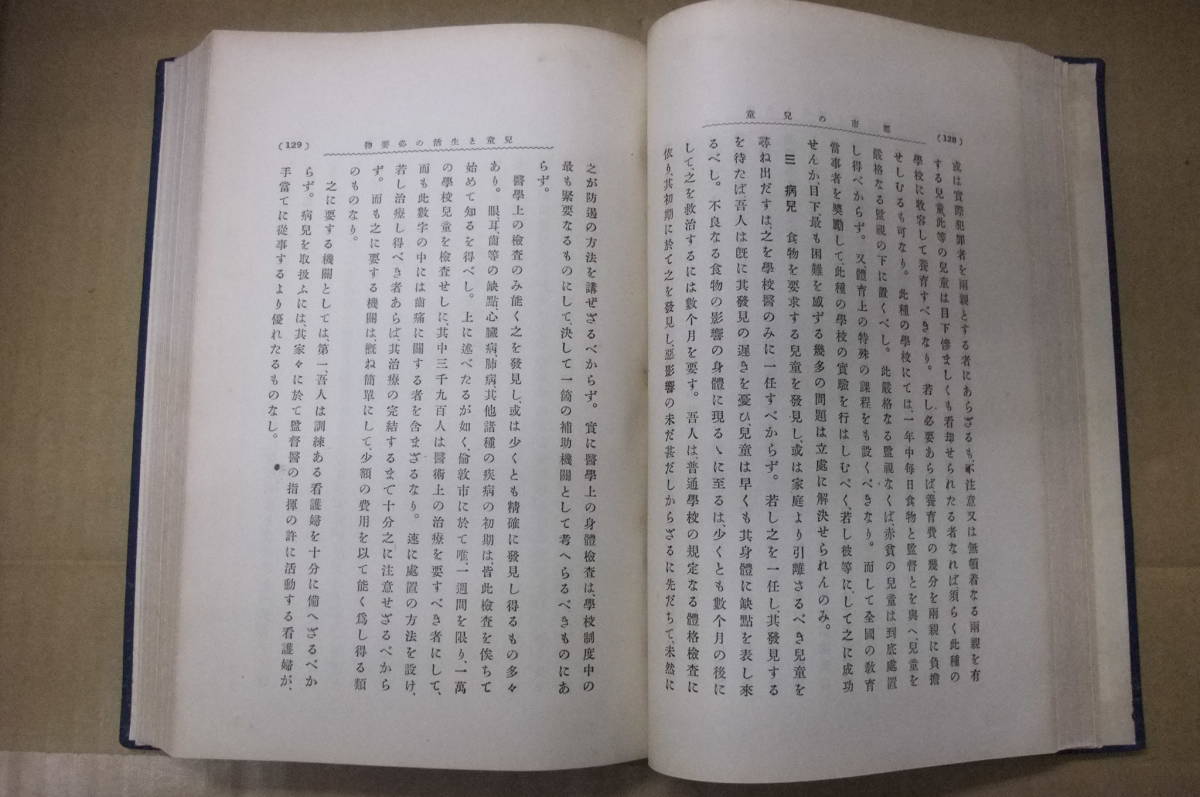 (128)
都市の兒童
或は實際犯罪者を兩親とする者にあらざるも、不注意又は無頓着なる兩親を有
する兒童此等の兒童は目下慘ましくも看却せられたる者なれば須らく此種の
學校に收容して養育すべきなり。若し必要あらば養育費の幾分を兩親に負擔
せしむるも可なり。此種の學校にては、一年中每日食物と監督とを與へ、兒童を
嚴格なる監視の下に置くべし。此嚴格なる監視なくば赤貧の兒童は到底處置
し得べからず。又體育上の特殊の課程をも設くべきなり。而して全國の敎育
當事者を奬勵して、此種の學校の實驗を行はしむべく、若し彼等にして之に成功
せんか目下最も困難を感ずる幾多の問題は立處に解決せられんのみ。
三 病兒 食物を要求する兒童を發見し、或は家庭より引離さるべき兒童を
尋ね出だすは、之を學校醫のみに一任すべからず。若し之を一任し、其發見する
を待たば吾人は旣に其發見の遲きを憂ひ、兒童は早くも其身體に缺點を表し來
るべし。不良なる食物の影響の身體に現るゝに至るは、少くとも數个月の後に
して、之を救治するには數个月を要す。吾人は、普通學校の規定なる體格檢査に
依り、其初期に於て之を發見し、惡影響の未だ甚だしからざるに先だちて、未然に
兒童と生活の必要物
(129)
之が防遏の方法を講ぜざるべからず。實に醫學上の身體檢査は、學校制度中の
最も緊要なるものにして、決して一箇の補助機關として考へらるべきものにあ
らず。
醫學上の檢査のみ能く之を發見し、或は少くとも精確に發見し得るもの多々
あり。眼、耳、齒等の缺點心臟病、肺病、其他諸種の疾病の初期は、皆此檢査を俟ちて
始めて知るを得べし。上に述べたるが如く、倫敦市に於て唯、一週間を限り、一萬
の學校兒童を檢査せしに、其中三千九百人は醫術上の治療を要すべき者にして、
而も此數字の中には齒痛に關する者を含まざるなり。速に處置の方法を設け、
若し治療し得べき者あらば、其治療の完結するまで十分之に注意せざるべから
ず。而も之に要する機關は、槪ね簡單にして、少額の費用を以て能く爲し得る類
のものなり。
之に要する機關としては、第一、吾人は訓練ある看護婦を十分に備へざるべか
らず。病兒を取扱ふには、其家々に於て監督醫の指揮の許に活動する看護婦が、
手當てに從事するより優れたるものなし。